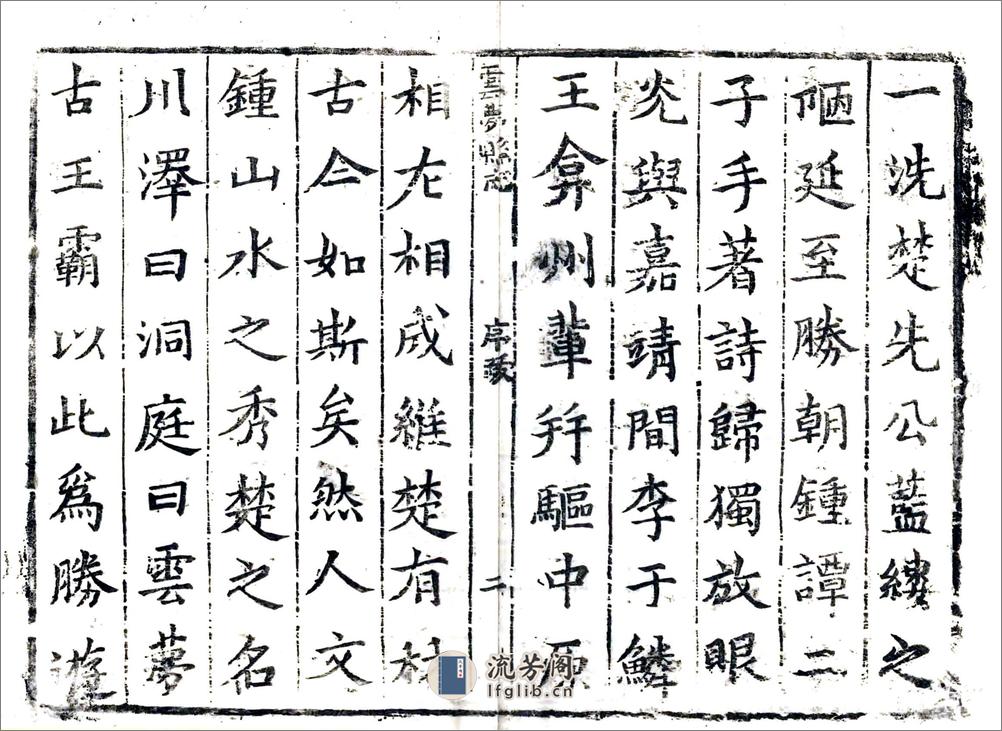 一洗楚先公藍縷之
陋延至勝朝鍾譚二
子手著詩歸獨放眼
光與嘉靖間李于鱗
王弇州輩幷驅中原
雲夢縣志 序 二
相左相成維楚有材
古今如斯矣然人文
鍾山水之秀楚之名
川澤曰洞庭曰雲夢
古王霸以此爲勝遊
流芳阁
lfglib.cn